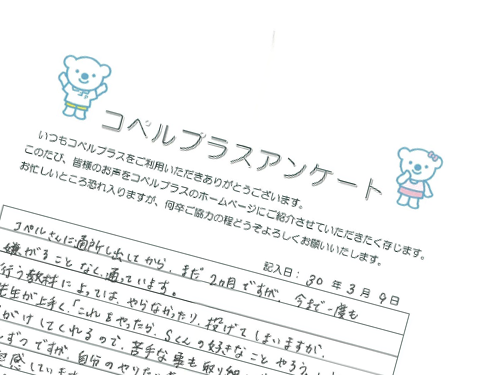 コペルプラスアンケート
いつもコペルプラスをご利用いただきありがとうございます。
このたび、皆様のお声をコペルプラスのホームページにご紹介させていただきたく存じます。
お忙しいところ恐れ入りますが、何卒ご協力の程どうぞよろしくお願いいたします。
記入日: 30 年 3 月 9 日
コペルさんに通所し出してから、まだ2ヵ月ですが、今まで一度も
嫌がることなく通っています。
行う教材によっては、やらなかったり、投げてしまいますが、
先生が上手く「これをやったら、Sくんの好きなことやろう
がけしてくれるので、苦手な事も取り組
ずつですが、自分のやりた
感しています